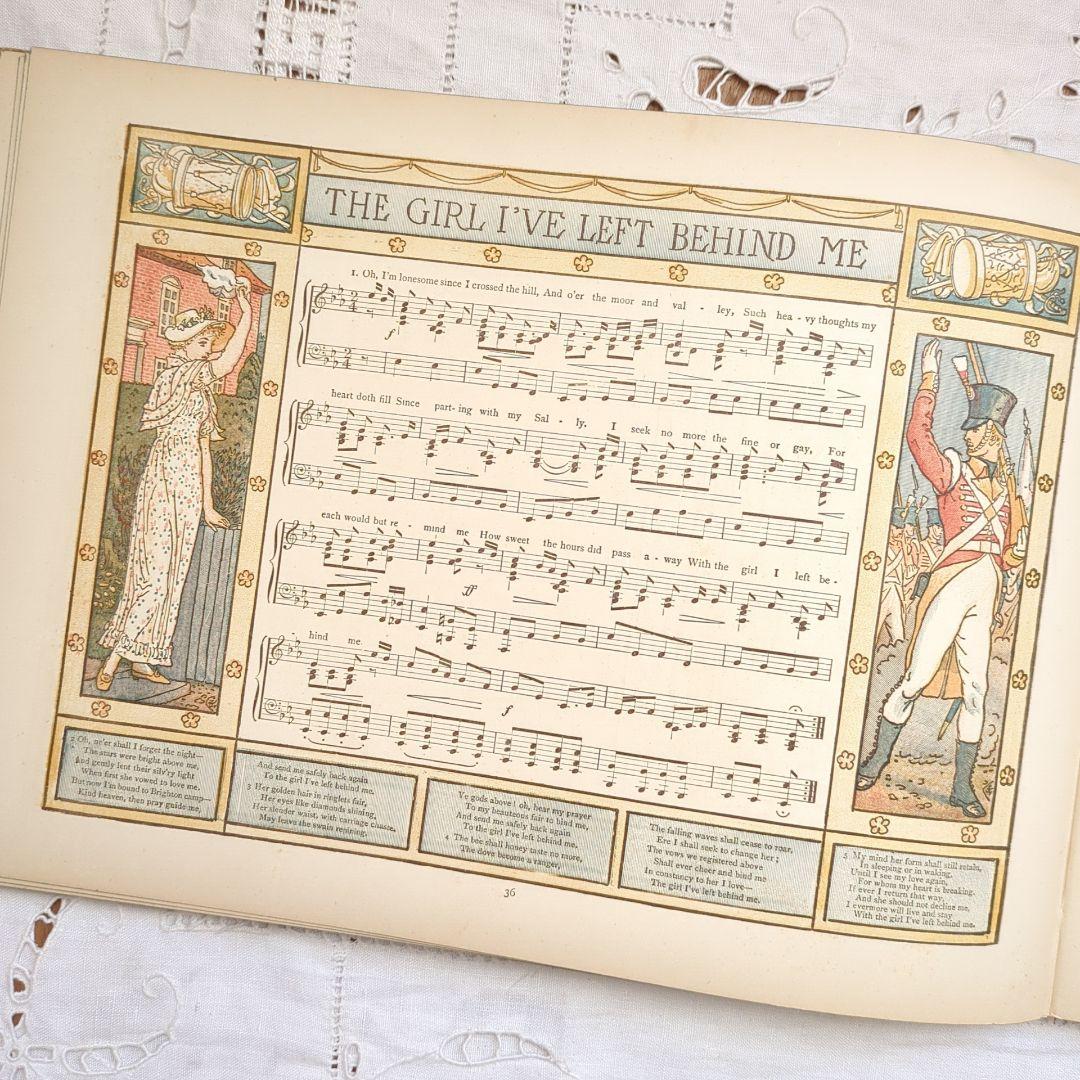 THE GIRL I'VE LEFT BEHIND ME
1. Oh, I'm lonesome since I crossed the hill, And o'er the moor and val - ley, Such hea - vy thoughts my
f
heart doth fill Since part- ing with my Sal - ly. I seek no more the fine or gay, For
each would but re - mind me How sweet the hours did pass a - way With the girl I left be -
ff
hind me.
f
2 Oh, ne'er shall I forget the night—
The stars were bright above me,
And gently lent their silv'ry light
When first she vowed to love me.
But now I'm bound to Brighton camp—
Kind heaven, then pray guide me,
And send me safely back again
To the girl I've left behind me.
3 Her golden hair in ringlets fair,
Her eyes like diamonds shining,
Her slender waist, with carriage chaste,
May leave the swain repining.
Ye gods above! oh, hear my prayer
To my beauteous fair to bind me,
And send me safely back again
To the girl I've left behind me.
4 The bee shall honey taste no more,
The dove become a ranger,
The falling waves shall cease to roar,
Ere I shall seek to change her;
The vows we registered above
Shall ever cheer and bind me
In constancy to her I love—
The girl I've left behind me.
5 My mind her form shall still retain,
In sleeping or in waking,
Until I see my love again,
For whom my heart is breaking.
If ever I return that way,
And she should not decline me,
I evermore will live and stay
With the girl I've left behind me.
36